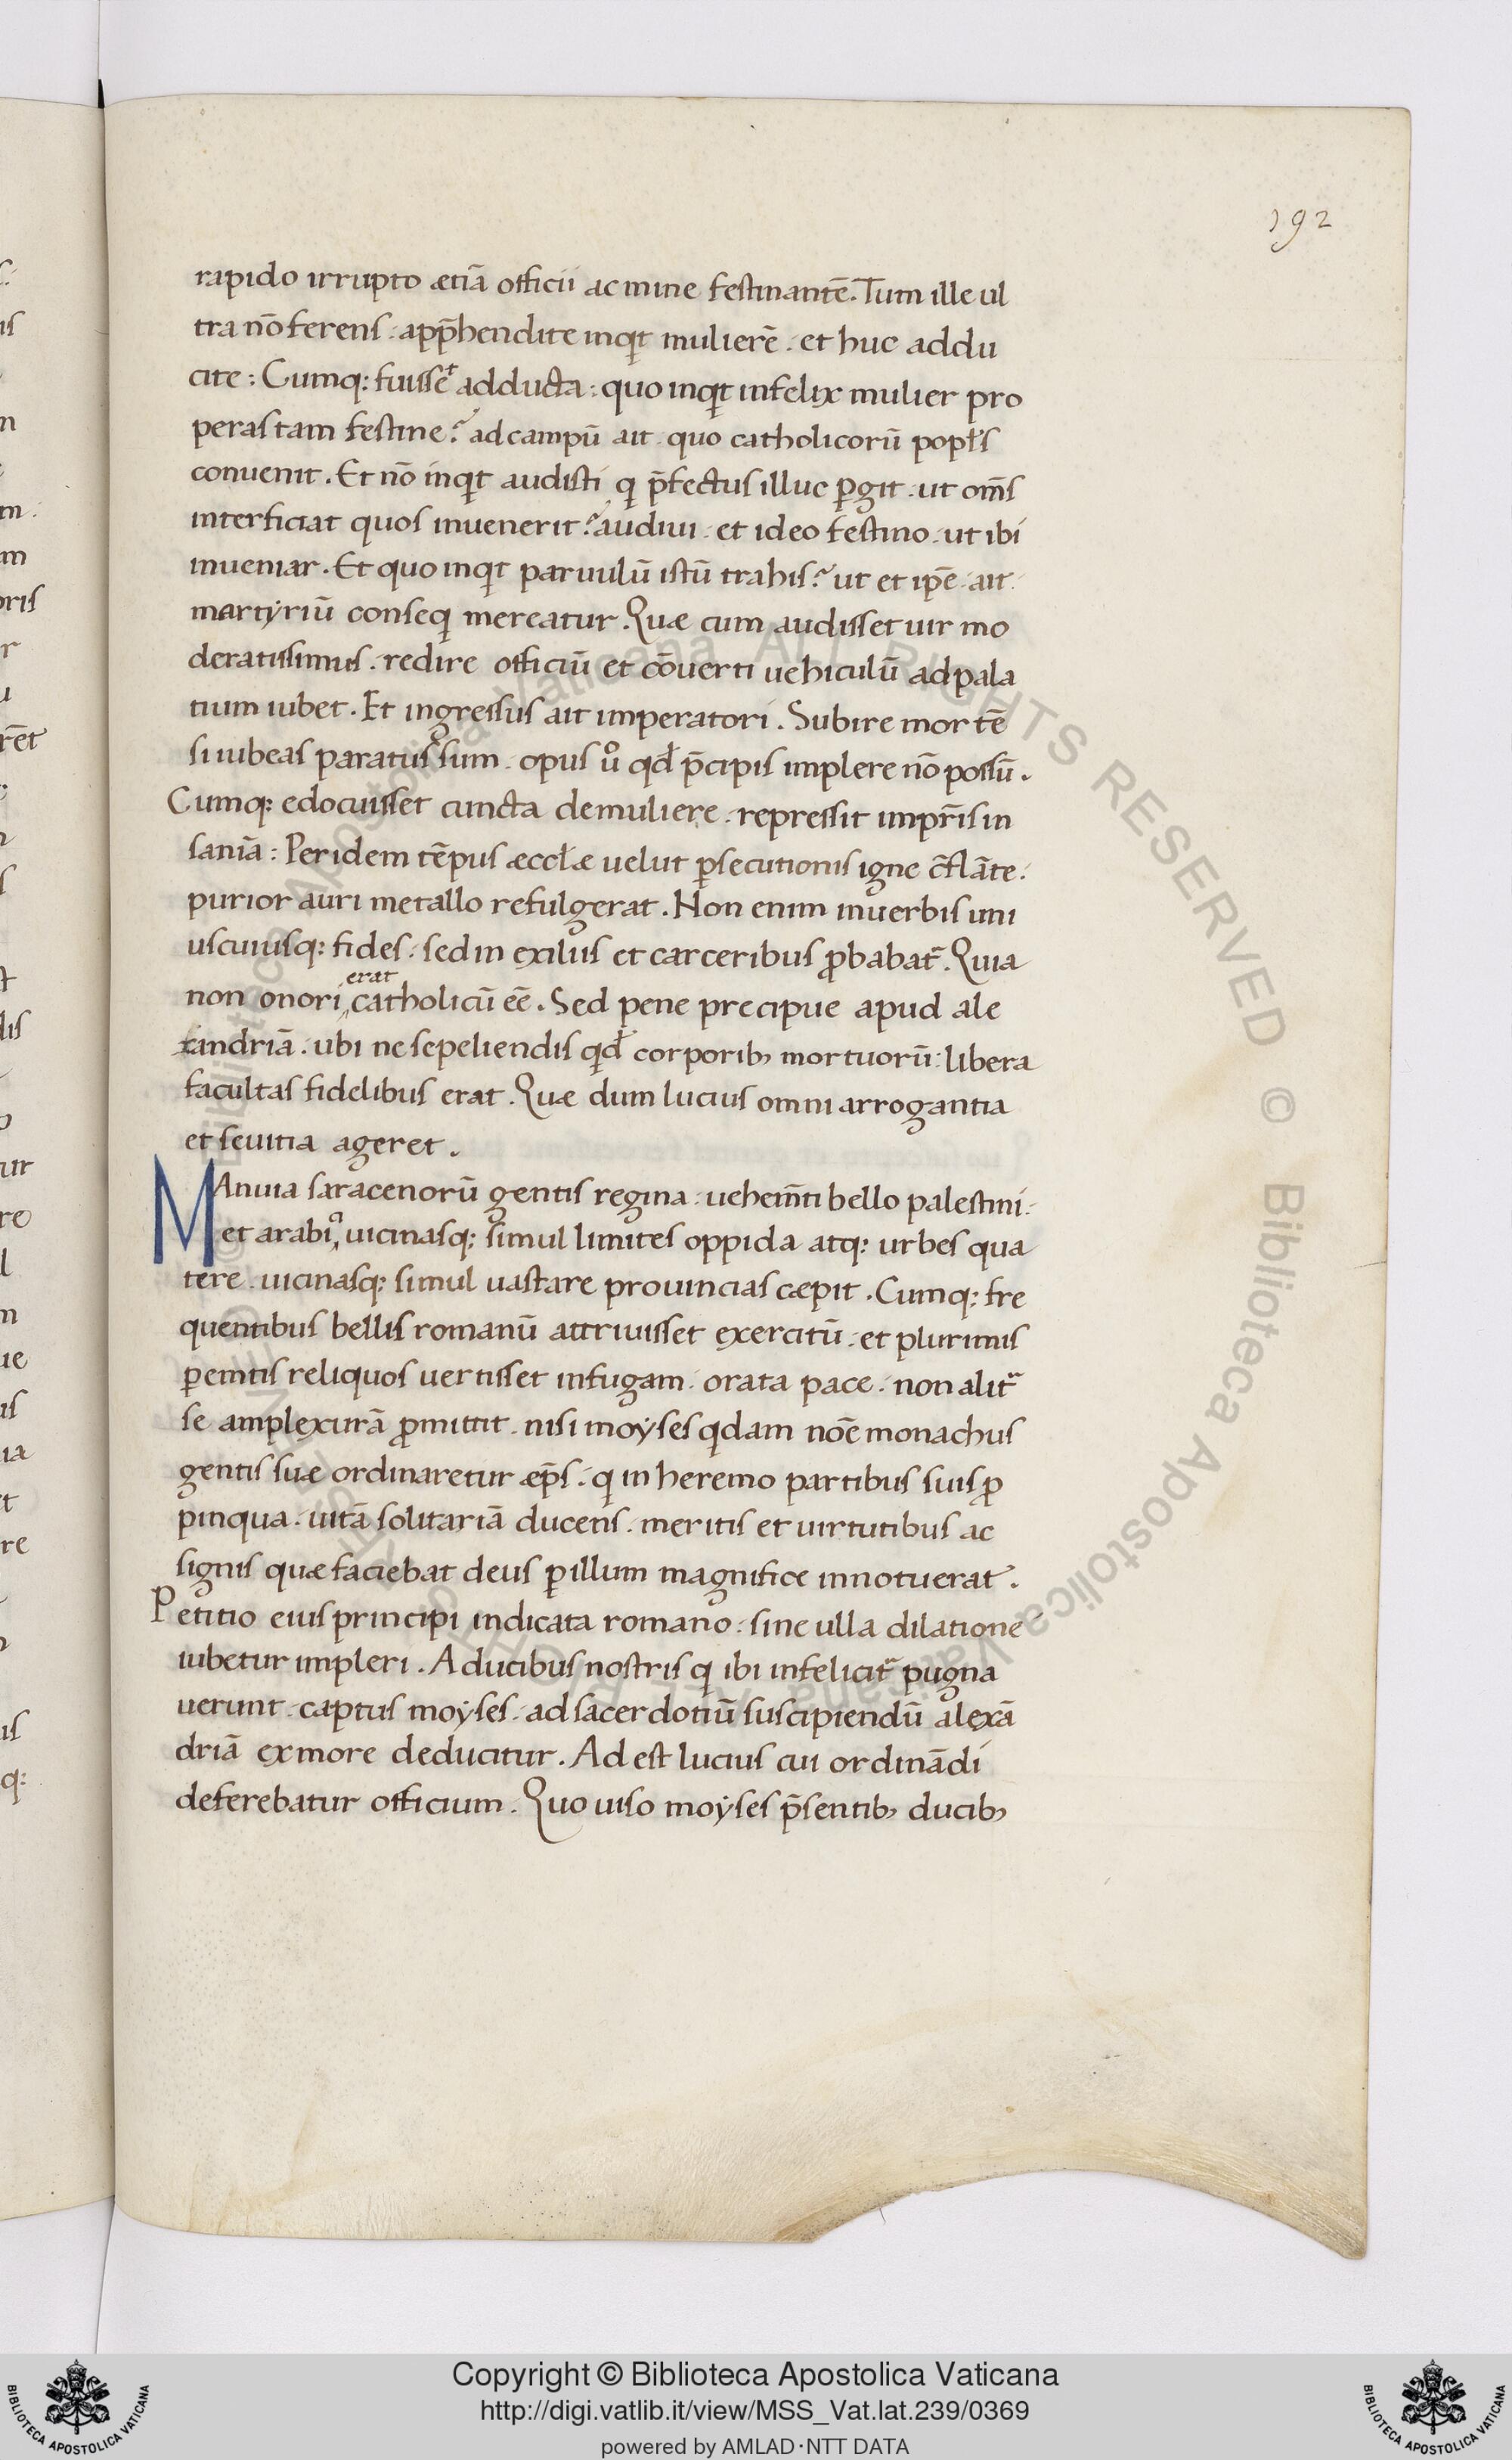 192
rapido irrupto ætiā officii ac mine festinantē. Tum ille ul
tra nō ferens. app̄hendite inqͥt mulierē. et huc addu
cite: Cumq: fuisse^t adducta: quo inqͥt infelix mulier pro
peras tam festine? ad campū ait. quo catholicorū popl̄s
conuenit. Et nō inqͥt audisti qͥ p̄fectus illuc ꝑgit. ut om̄s
interficiat quos inuenerit? audiui. et ideo festino. ut ibi
inueniar. Et quo inqͥt paruulū istū trahis? ut et ip̄e. ait.
martyriū conseqͥ mereatur. Quæ cum audisset uir mo
deratissimus. redire officiū et cōuerti uehiculū ad pala
tium iubet. Et ingressus ait imperatori. Subire mortē
si iubeas paratus sum. opus uͦ qd̄ p̄cipis implere nō possū.
Cumq: edocuisset cuncta de muliere. repressit impr̄is in
saniā: Per idem tēpus æccl̄æ uelut ꝑsecutionis igne c̄flāte.
purior auri metallo refulgerat. Non enim in uerbis uni
uscuiusq: fides. sed in exiliis et carceribus ꝓbabat̄. Quia
erat
non onori catholicū eē. Sed pene precipue apud ale
xandriā. ubi ne sepeliendis qͥd̄ corporib; mortuorū: libera
facultas fidelibus erat. Quæ dum lucius omni arrogantia
et seuitia ageret.
MAnuia saracenorū gentis regina. uehem̄ti bello palestini.
et arabi, uicinasq: simul limites oppida atq: urbes qua
tere. uicinasq: simul uastare prouincias cæpit. Cumq: fre
quentibus bellis romanū attriuisset exercitū. et plurimis
ꝑemtis reliquos uertisset in fugam. orata pace. non alit̄
se amplexurā ꝓmittit. nisi moyses qͥdam noē monachus
gentis suæ ordinaretur æp̄s. qͥ in heremo partibus suis ꝓ
pinqua. uitā solitariā ducens. meritis et uirtutibus ac
signis quæ faciebat deus ꝑ illum magnifice innotuerat.
Petitio eius principi indicata romano. sine ulla dilatione
iubetur impleri. A ducibus nostris qͥ ibi infelicit̄ pugna
uerunt. captus moyses. ad sacerdotiū suscipiendū alexā
driā ex more deducitur. Adest lucius cui ordināndi
deferebatur officium. Quo uiso moyses p̄sentib; ducib;
Copyright © Biblioteca Apostolica Vaticana
http://digi.vatlib.it/view/MSS_Vat.lat.239/0369
powered by AMLAD·NTT DATA